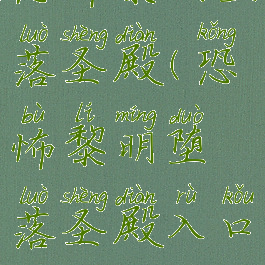 luò shèng diàn kǒng
落圣殿(恐
bù lí míng duò
怖黎明堕
luò shèng diàn rù kǒu
落圣殿入口